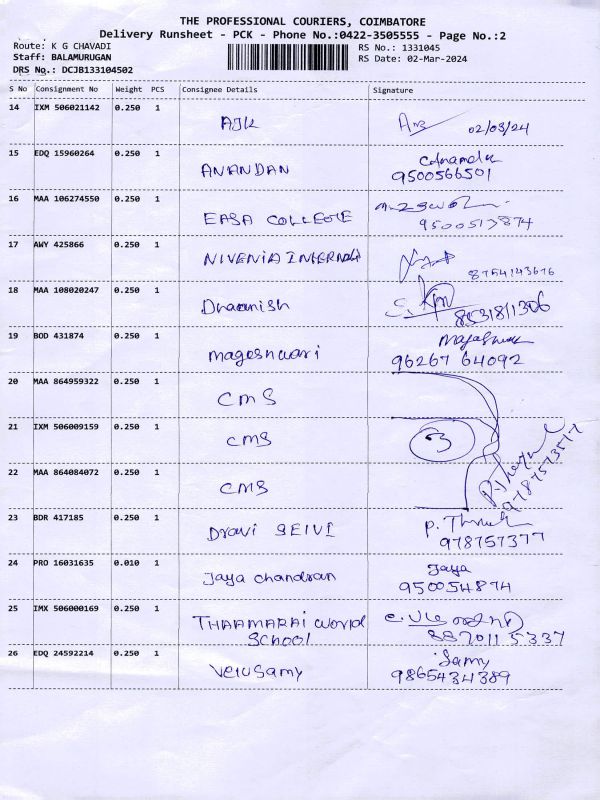 THE PROFESSIONAL COURIERS, COIMBATORE
Delivery Runsheet - PCK - Phone No.:0422-3505555 - Page No.:2
Route: K G CHAVADI
RS No.: 1331045
Staff: BALAMURUGAN
RS Date: 02-Mar-2024
DRS No.: DCJB133104502
S No Consignment No Weight PCS Consignee Details Signature
14 IXM 506021142 0.250 1 AJK 02/03/24
15 EDQ 15960264 0.250 1 ANANDAN
9500566501
16 MAA 106274550 0.250 1 EASA COLLEGE
9500513874
17 AWY 425866 0.250 1 NIVENIA INTERNATI
8754143616
18 MAA 108020247 0.250 1 Dhaanish
19 BOD 431874 0.250 1 mageshwari
96267 64092
20 MAA 864959322 0.250 1 CMS
21 IXM 506009159 0.250 1 CMS 3
22 MAA 864084072 0.250 1 CMS
9787573577
23 BDR 417185 0.250 1 Dravi SEIVI
978757377
24 PRO 16031635 0.010 1 Jaya chandran Jaya
950054874
25 IMX 506000169 0.250 1 THAAMARAI world
SCHOOL
887011 5337
26 EDQ 24592214 0.250 1 Velusamy Samy
9865434389